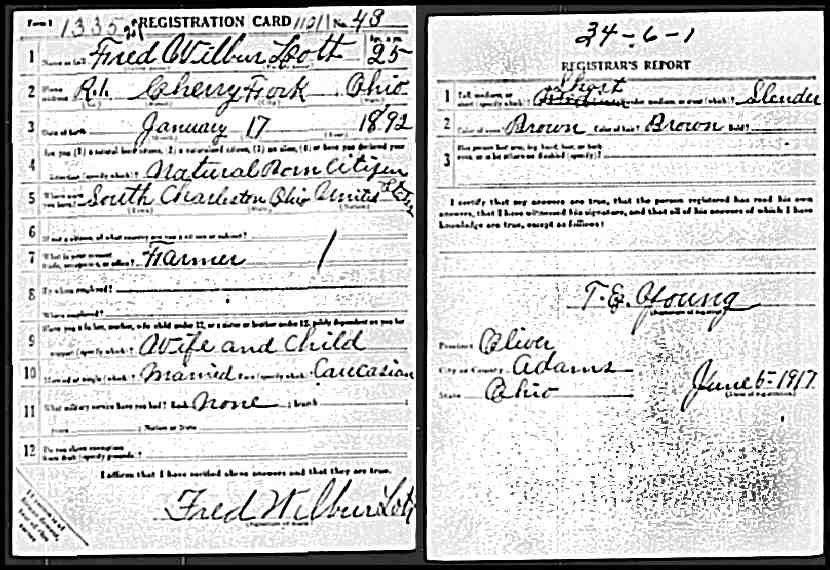 Form 1 1335 REGISTRATION CARD No. 43
1 Name in full Fred Wilbur Lott Age, in yrs. 25
2 Home address R.1. Cherry Fork Ohio
3 Date of birth January 17 1892
4 Are you (1) a natural-born citizen, (2) a naturalized citizen, (3) an alien, (4) or have you declared your
intention (specify which)? Natural Born Citizen
5 Where were you born? South Charleston Ohio United States
6 If not a citizen, of what country are you a citizen or subject?
7 What is your present trade, occupation, or office? Farmer
8 By whom employed?
Where employed?
9 Have you a father, mother, wife, child under 12, or a sister or brother under 12, solely dependent on you for
support (specify which)? Wife and Child
10 Married or single (which)? Married Race (specify which)? Caucasian
11 What military service have you had? Rank None ; branch
years ; Nation or State
12 Do you claim exemption from draft (specify grounds)?
I affirm that I have verified above answers and that they are true.
Fred Wilbur Lott
34-6-1
REGISTRAR'S REPORT
1 Tall, medium, or short (specify which)? Short Slender, medium, or stout (which)? Slender
2 Color of eyes? Brown Color of hair? Brown Bald?
3 Has person lost arm, leg, hand, foot, or both
eyes, or is he otherwise disabled (specify)?
I certify that my answers are true, that the person registered has read his own
answers, that I have witnessed his signature, and that all of his answers of which I have
knowledge are true, except as follows:
T. E. Young
(Signature of registrar)
Precinct Oliver
City or County Adams
State Ohio June 5-1917
(Date of registration)